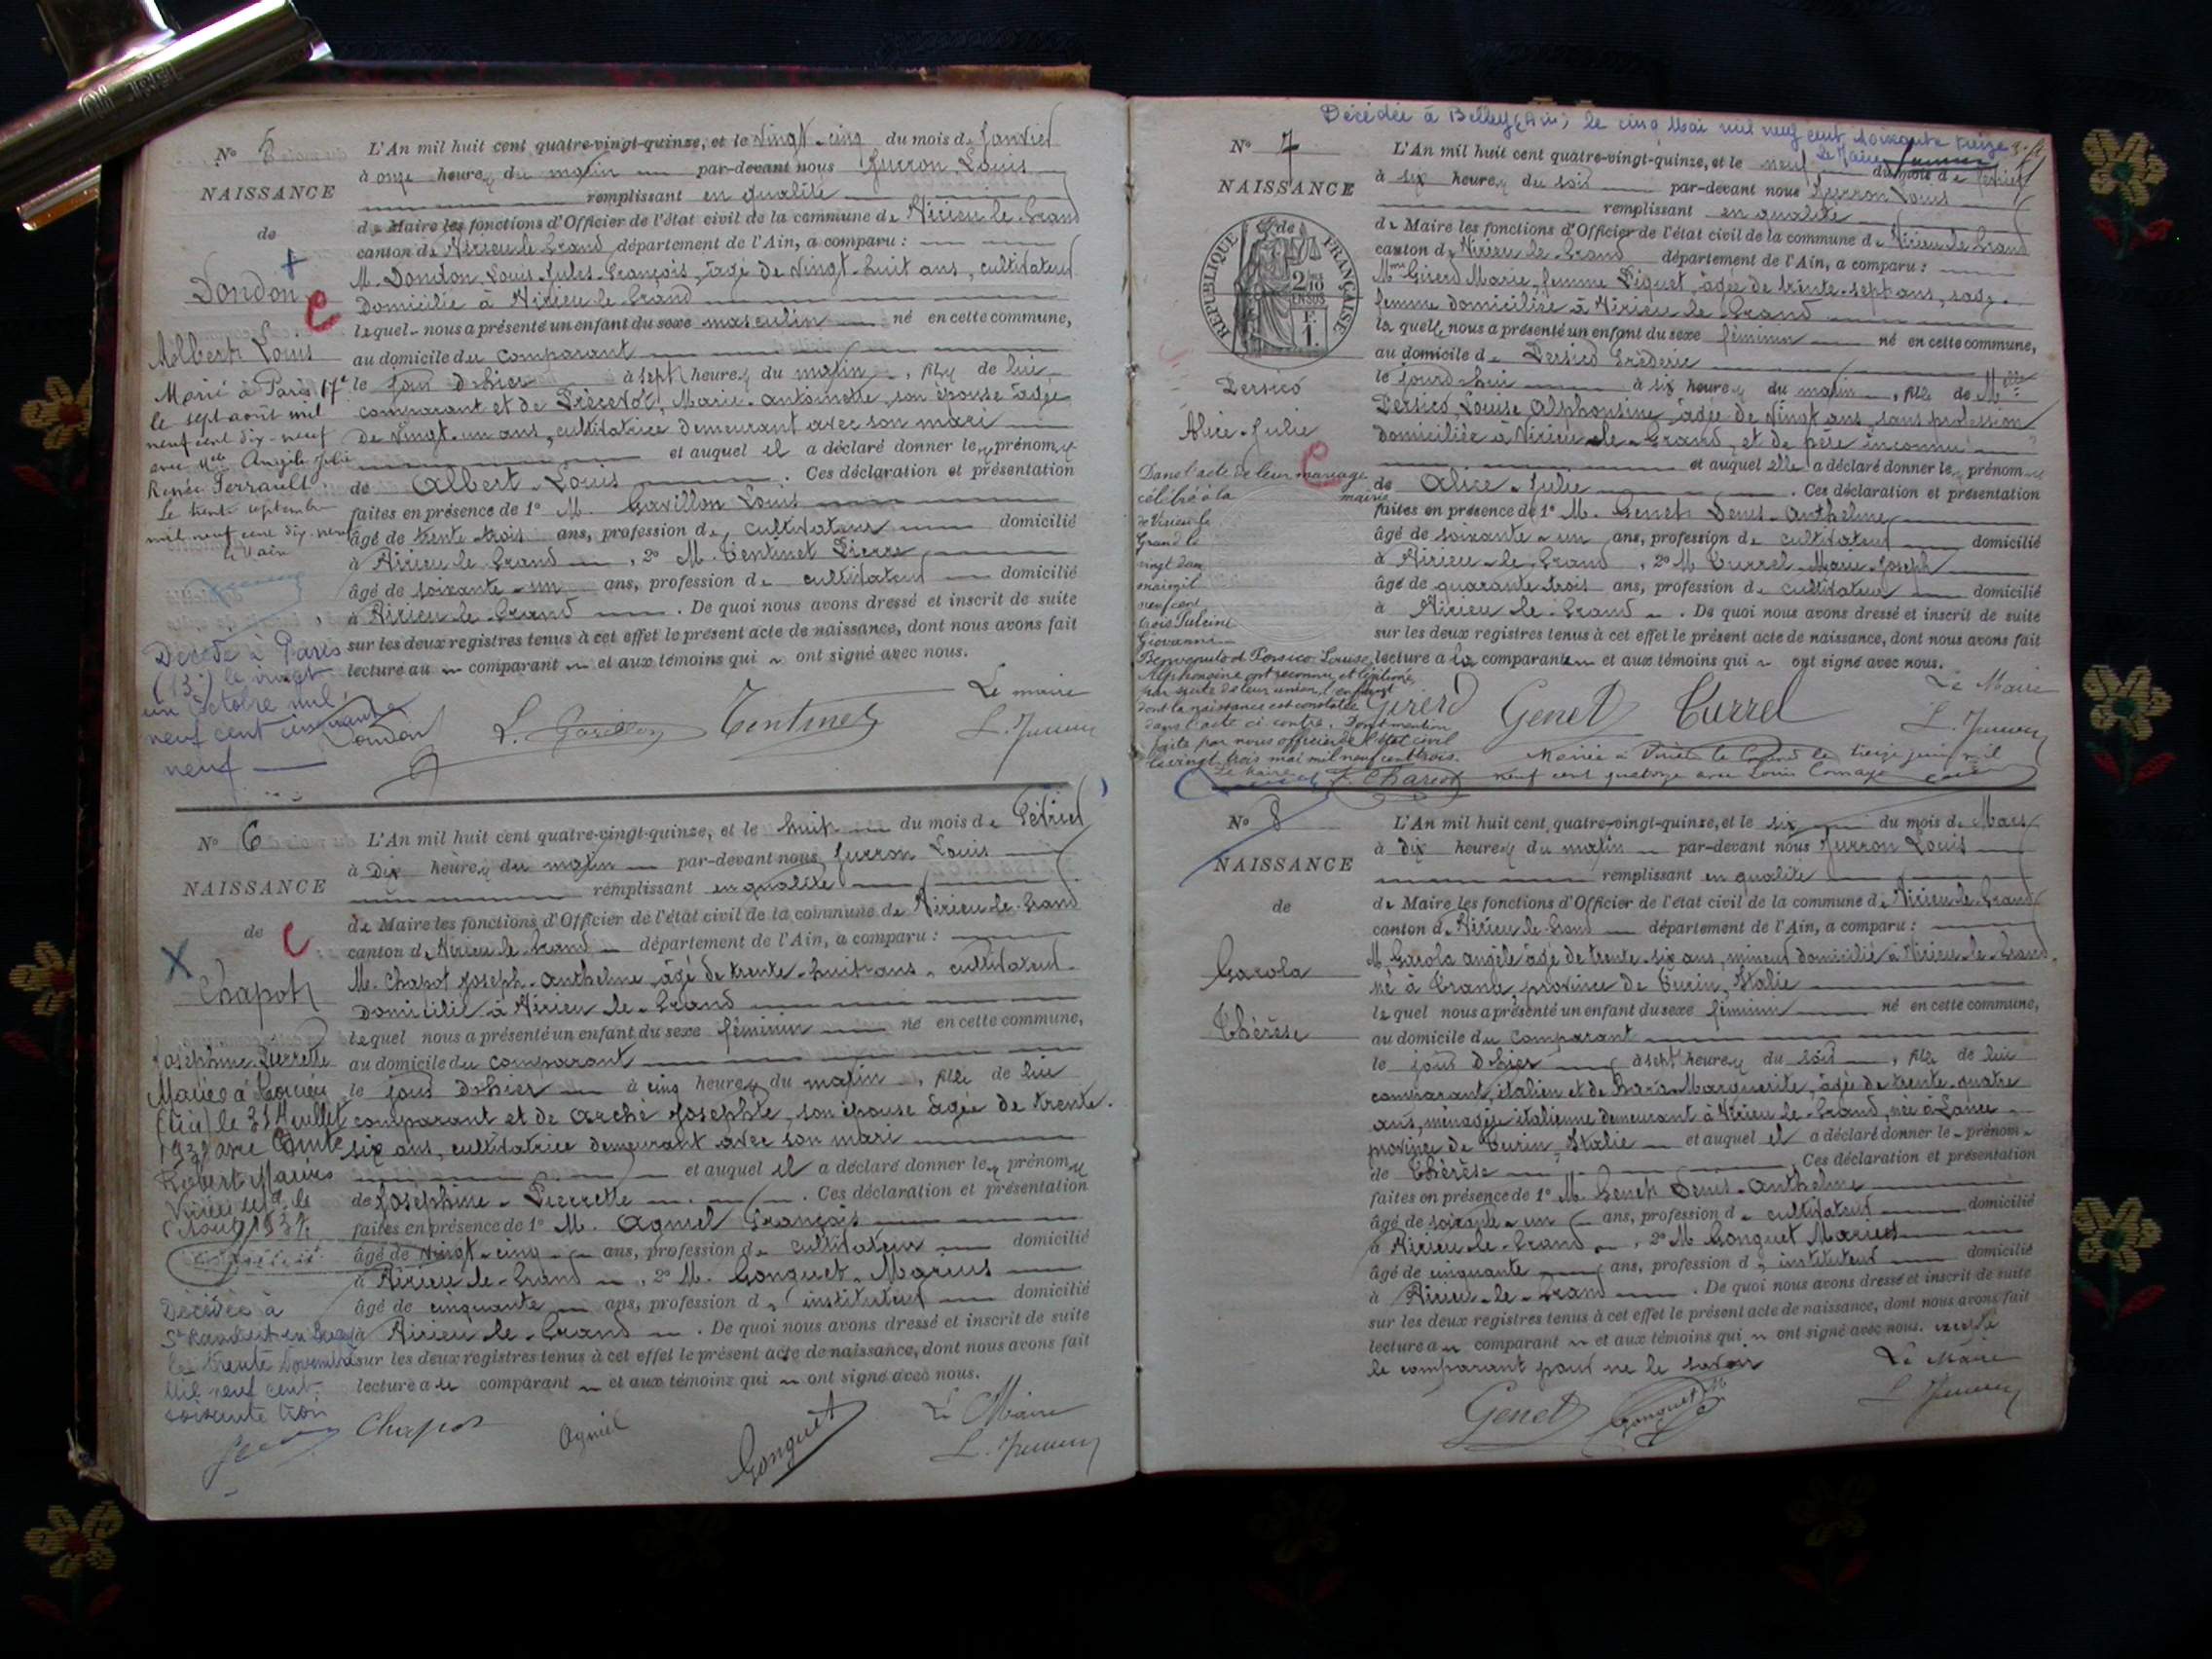 N° 5
NAISSANCE
de
Dondon
Albert Louis
Marié à Paris 17e
le sept août mil
neuf cent dix-neuf
avec Mlle Angèle Julie
Renée Perrault.
Le trente septembre
mil neuf cent dix-neuf
le Maire
Décédé à Paris
(13e) le vingt
un octobre mil
neuf cent cinquante
neuf
L'An mil huit cent quatre-vingt-quinze, et le vingt-cinq du mois de Janvier
à onze heures du matin par-devant nous Juvron Louis
remplissant en qualité
de Maire les fonctions d'Officier de l'état civil de la commune de Virieu-le-Grand
canton de Virieu-le-Grand département de l'Ain, a comparu :
M. Dondon Louis Jules François, âgé de vingt-huit ans, cultivateur
domicilié à Virieu-le-Grand
lequel nous a présenté un enfant du sexe masculin né en cette commune,
au domicile du comparant
le jour d'hier à sept heures du matin, fils de lui
comparant et de Marie-Antoinette, son épouse âgée
de vingt-un ans, cultivatrice demeurant avec son mari
et auquel il a déclaré donner les prénoms
de Albert-Louis. Ces déclaration et présentation
faites en présence de 1° M. Gavillon Louis
âgé de trente-trois ans, profession de cultivateur domicilié
à Virieu-le-Grand, 2° M. Tentinet Pierre
âgé de soixante-un ans, profession de cultivateur domicilié
à Virieu-le-Grand. De quoi nous avons dressé et inscrit de suite
sur les deux registres tenus à cet effet le présent acte de naissance, dont nous avons fait
lecture au comparant et aux témoins qui ont signé avec nous.
Le maire
Dondon L. Gavillon Tentinet
N° 6
NAISSANCE
de
Chapot
Joséphine-Pierrette
Mariée à
le 31 Juillet
avec
Robert Marius
Virieu le Gd le
Août 1937
Décédée à
St Rambert en Bugey
le trente Novembre
mil neuf cent
soixante trois
L'An mil huit cent quatre-vingt-quinze, et le huit du mois de Février
à dix heures du matin par-devant nous Juvron Louis
remplissant en qualité
de Maire les fonctions d'Officier de l'état civil de la commune de Virieu-le-Grand
canton de Virieu-le-Grand département de l'Ain, a comparu :
M. Chapot Joseph-Anthelme âgé de trente-huit ans, cultivateur
domicilié à Virieu-le-Grand
lequel nous a présenté un enfant du sexe féminin né en cette commune,
au domicile du comparant
le jour d'hier à cinq heures du matin, fille de lui
comparant et de Arché Josephte, son épouse âgée de trente-
six ans, cultivatrice demeurant avec son mari
et auquel il a déclaré donner les prénoms
de Joséphine-Pierrette. Ces déclaration et présentation
faites en présence de 1° M. Agniel François
âgé de vingt-cinq ans, profession de cultivateur domicilié
à Virieu-le-Grand, 2° M. Gonguet Marius
âgé de cinquante ans, profession d'instituteur domicilié
à Virieu-le-Grand. De quoi nous avons dressé et inscrit de suite
sur les deux registres tenus à cet effet le présent acte de naissance, dont nous avons fait
lecture a le comparant et aux témoins qui ont signé avec nous.
Le Maire
Chapot Agniel Gonguet
Décédée à Belley (Ain) le cinq Mai mil neuf cent soixante treize
Le Maire
N° 7
NAISSANCE
RÉPUBLIQUE FRANÇAISE
de
2/10 EN SUS
F. 1.
Persico
Alice-Julie
Dans l'acte de leur mariage
célébré à la mairie
de Virieu le
Grand le
vingt deux
mai mil
neuf cent
trois
Giovanni
Benvenuto et Persico Louise
Alphonsine ont reconnu et légitimé,
par suite de leur union, l'enfant
dont la naissance est constatée
dans l'acte ci contre. Dont mention
faite par nous officier de l'état civil
le vingt trois mai mil neuf cent trois.
Le Maire
L'An mil huit cent quatre-vingt-quinze, et le neuf du mois de février
à six heures du soir par-devant nous Juvron Louis
remplissant en qualité
de Maire les fonctions d'Officier de l'état civil de la commune de Virieu-le-Grand
canton de Virieu-le-Grand département de l'Ain, a comparu :
Mme Girerd Marie, femme Piquet, âgée de trente-sept ans, sage-
femme domiciliée à Virieu-le-Grand
laquelle nous a présenté un enfant du sexe féminin né en cette commune,
au domicile de Persico Frédéric
le jourd'hui à six heures du matin, fille de Mlle
Persico, Louise, Alphonsine âgée de vingt ans, sans profession
domiciliée à Virieu-le-Grand, et de père inconnu
et auquel elle a déclaré donner les prénoms
de Alice-Julie. Ces déclaration et présentation
faites en présence de 1° M. Genet Denis-Anthelme
âgé de soixante-un ans, profession de cultivateur domicilié
à Virieu-le-Grand, 2° M. Turrel Marie Joseph
âgé de quarante-trois ans, profession de cultivateur domicilié
à Virieu-le-Grand. De quoi nous avons dressé et inscrit de suite
sur les deux registres tenus à cet effet le présent acte de naissance, dont nous avons fait
lecture a la comparante et aux témoins qui ont signé avec nous.
Le Maire
Girerd Genet Turrel
Mariée à Virieu le Grand le treize juin mil
neuf cent quatorze avec Louis
N° 8
NAISSANCE
de
Garola
Thérèse
L'An mil huit cent quatre-vingt-quinze, et le six du mois de Mars
à dix heures du matin par-devant nous Juvron Louis
remplissant en qualité
de Maire les fonctions d'Officier de l'état civil de la commune de Virieu-le-Grand
canton de Virieu-le-Grand département de l'Ain, a comparu :
M. Garola Angèle âgé de trente-six ans, mineur domicilié à Virieu-le-Grand,
né à Trana, province de Turin, Italie
lequel nous a présenté un enfant du sexe féminin né en cette commune,
au domicile du comparant
le jour d'hier à sept heures du soir, fille de lui
comparant, italien et de Bara Marguerite, âgée de trente-quatre
ans, ménagère italienne demeurant à Virieu-le-Grand, née à
province de Turin, Italie et auquel il a déclaré donner le prénom
de Thérèse. Ces déclaration et présentation
faites en présence de 1° M. Genet Denis-Anthelme
âgé de soixante-un ans, profession de cultivateur domicilié
à Virieu-le-Grand, 2° M. Gonguet Marius
âgé de cinquante ans, profession d'instituteur domicilié
à Virieu-le-Grand. De quoi nous avons dressé et inscrit de suite
sur les deux registres tenus à cet effet le présent acte de naissance, dont nous avons fait
lecture au comparant et aux témoins qui ont signé avec nous.
le comparant pour ne le savoir
Le Maire
Genet Gonguet